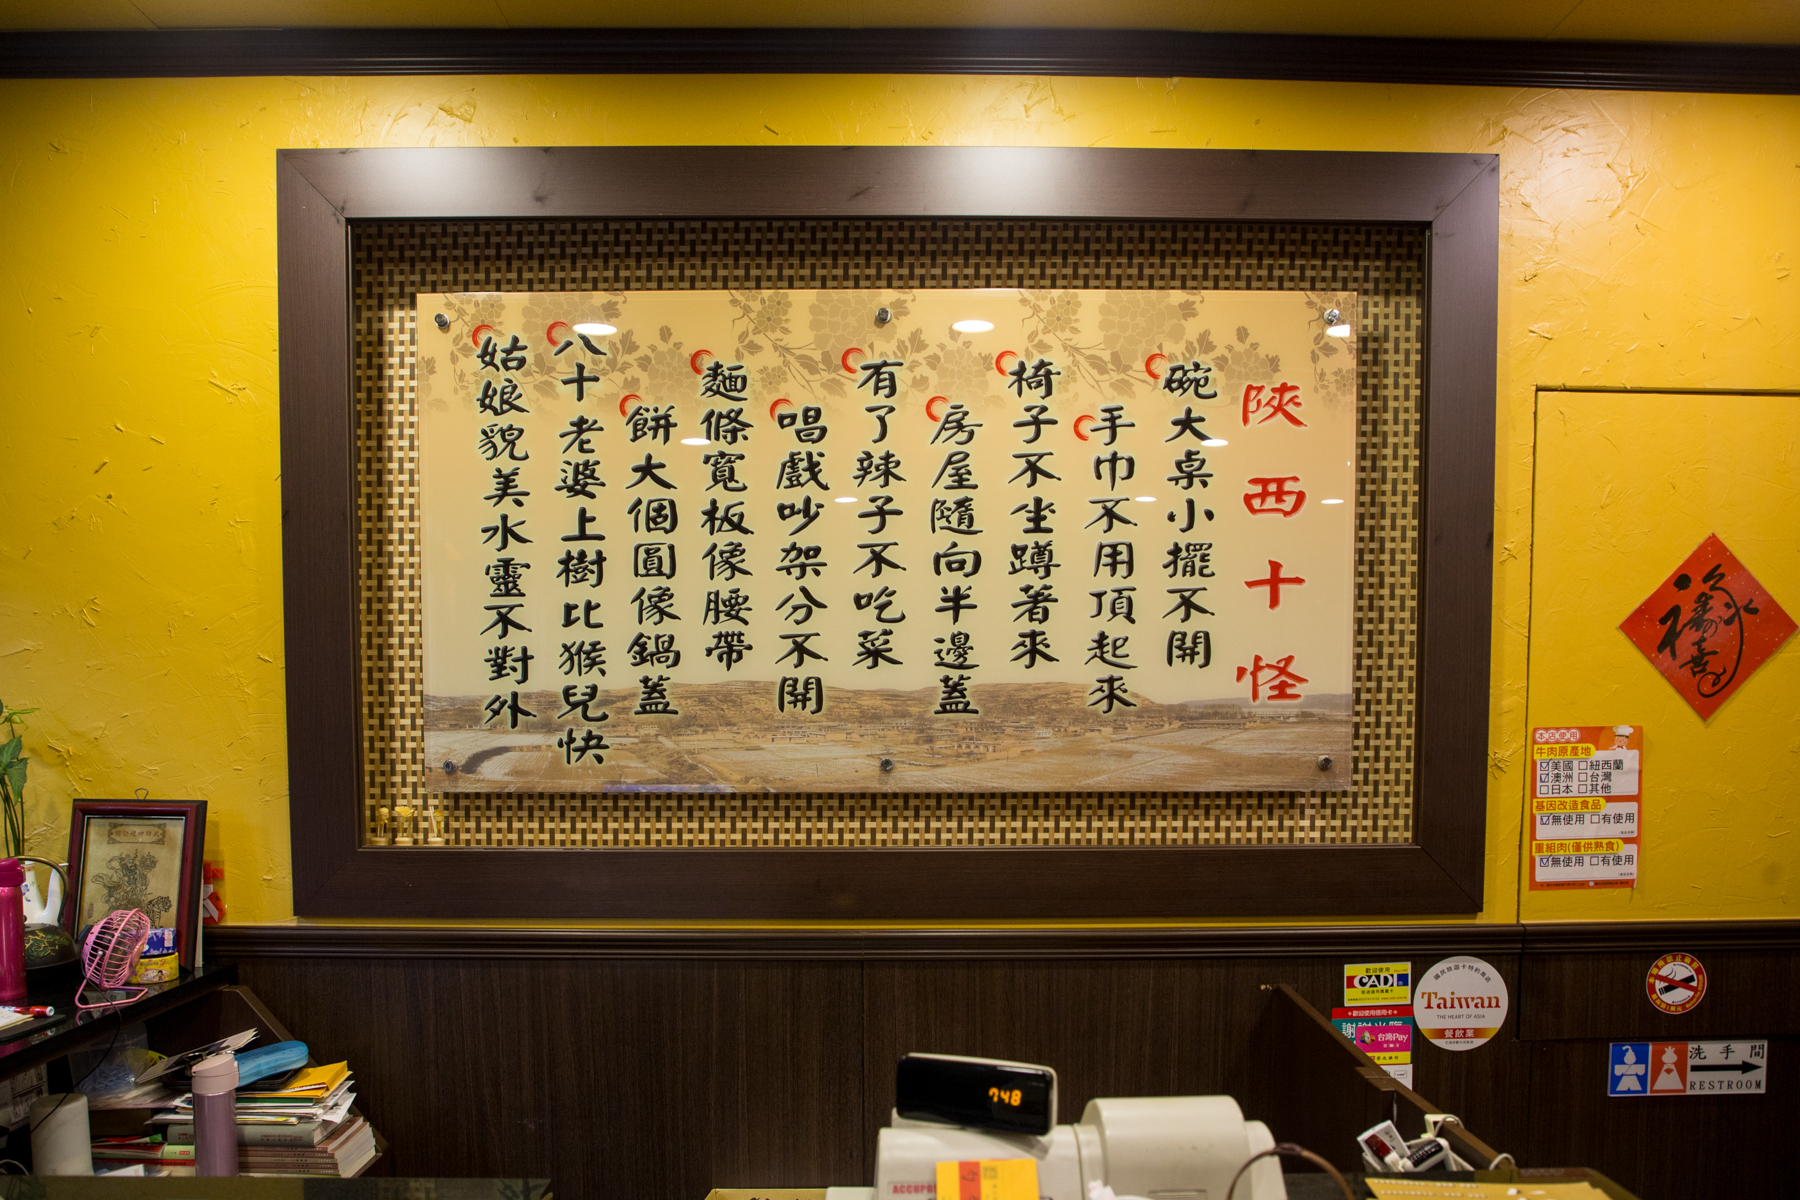 陝西十怪
碗大桌小擺不開
手巾不用頂起來
椅子不坐蹲著來
房屋隨向半邊蓋
有了辣子不吃菜
唱戲吵架分不開
麵條寬板像腰帶
餅大個圓像鍋蓋
八十老婆上樹比猴兒快
姑娘貌美水靈不對外
本店使用
牛肉原產地
☑美國 □紐西蘭
☑澳洲 □台灣
□日本 □其他
基因改造食品
☑無使用 □有使用
重組肉(僅供熟食)
☑無使用 □有使用
歡迎使用
CADI
國民旅遊卡特約商店
Taiwan
THE HEART OF ASIA
餐飲業
台灣Pay
洗手間
RESTROOM
748